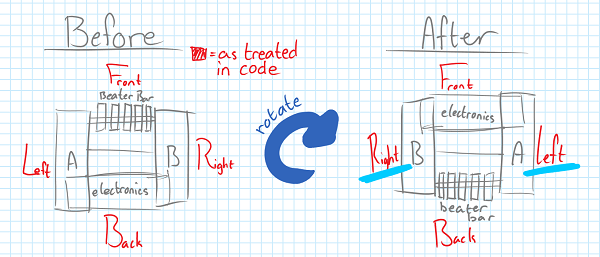 Before
= as treated
in code
Front
Beater Bar
Left
A
B
Right
electronics
Back
rotate
After
Front
electronics
Right
B
A
Left
beater
bar
Back